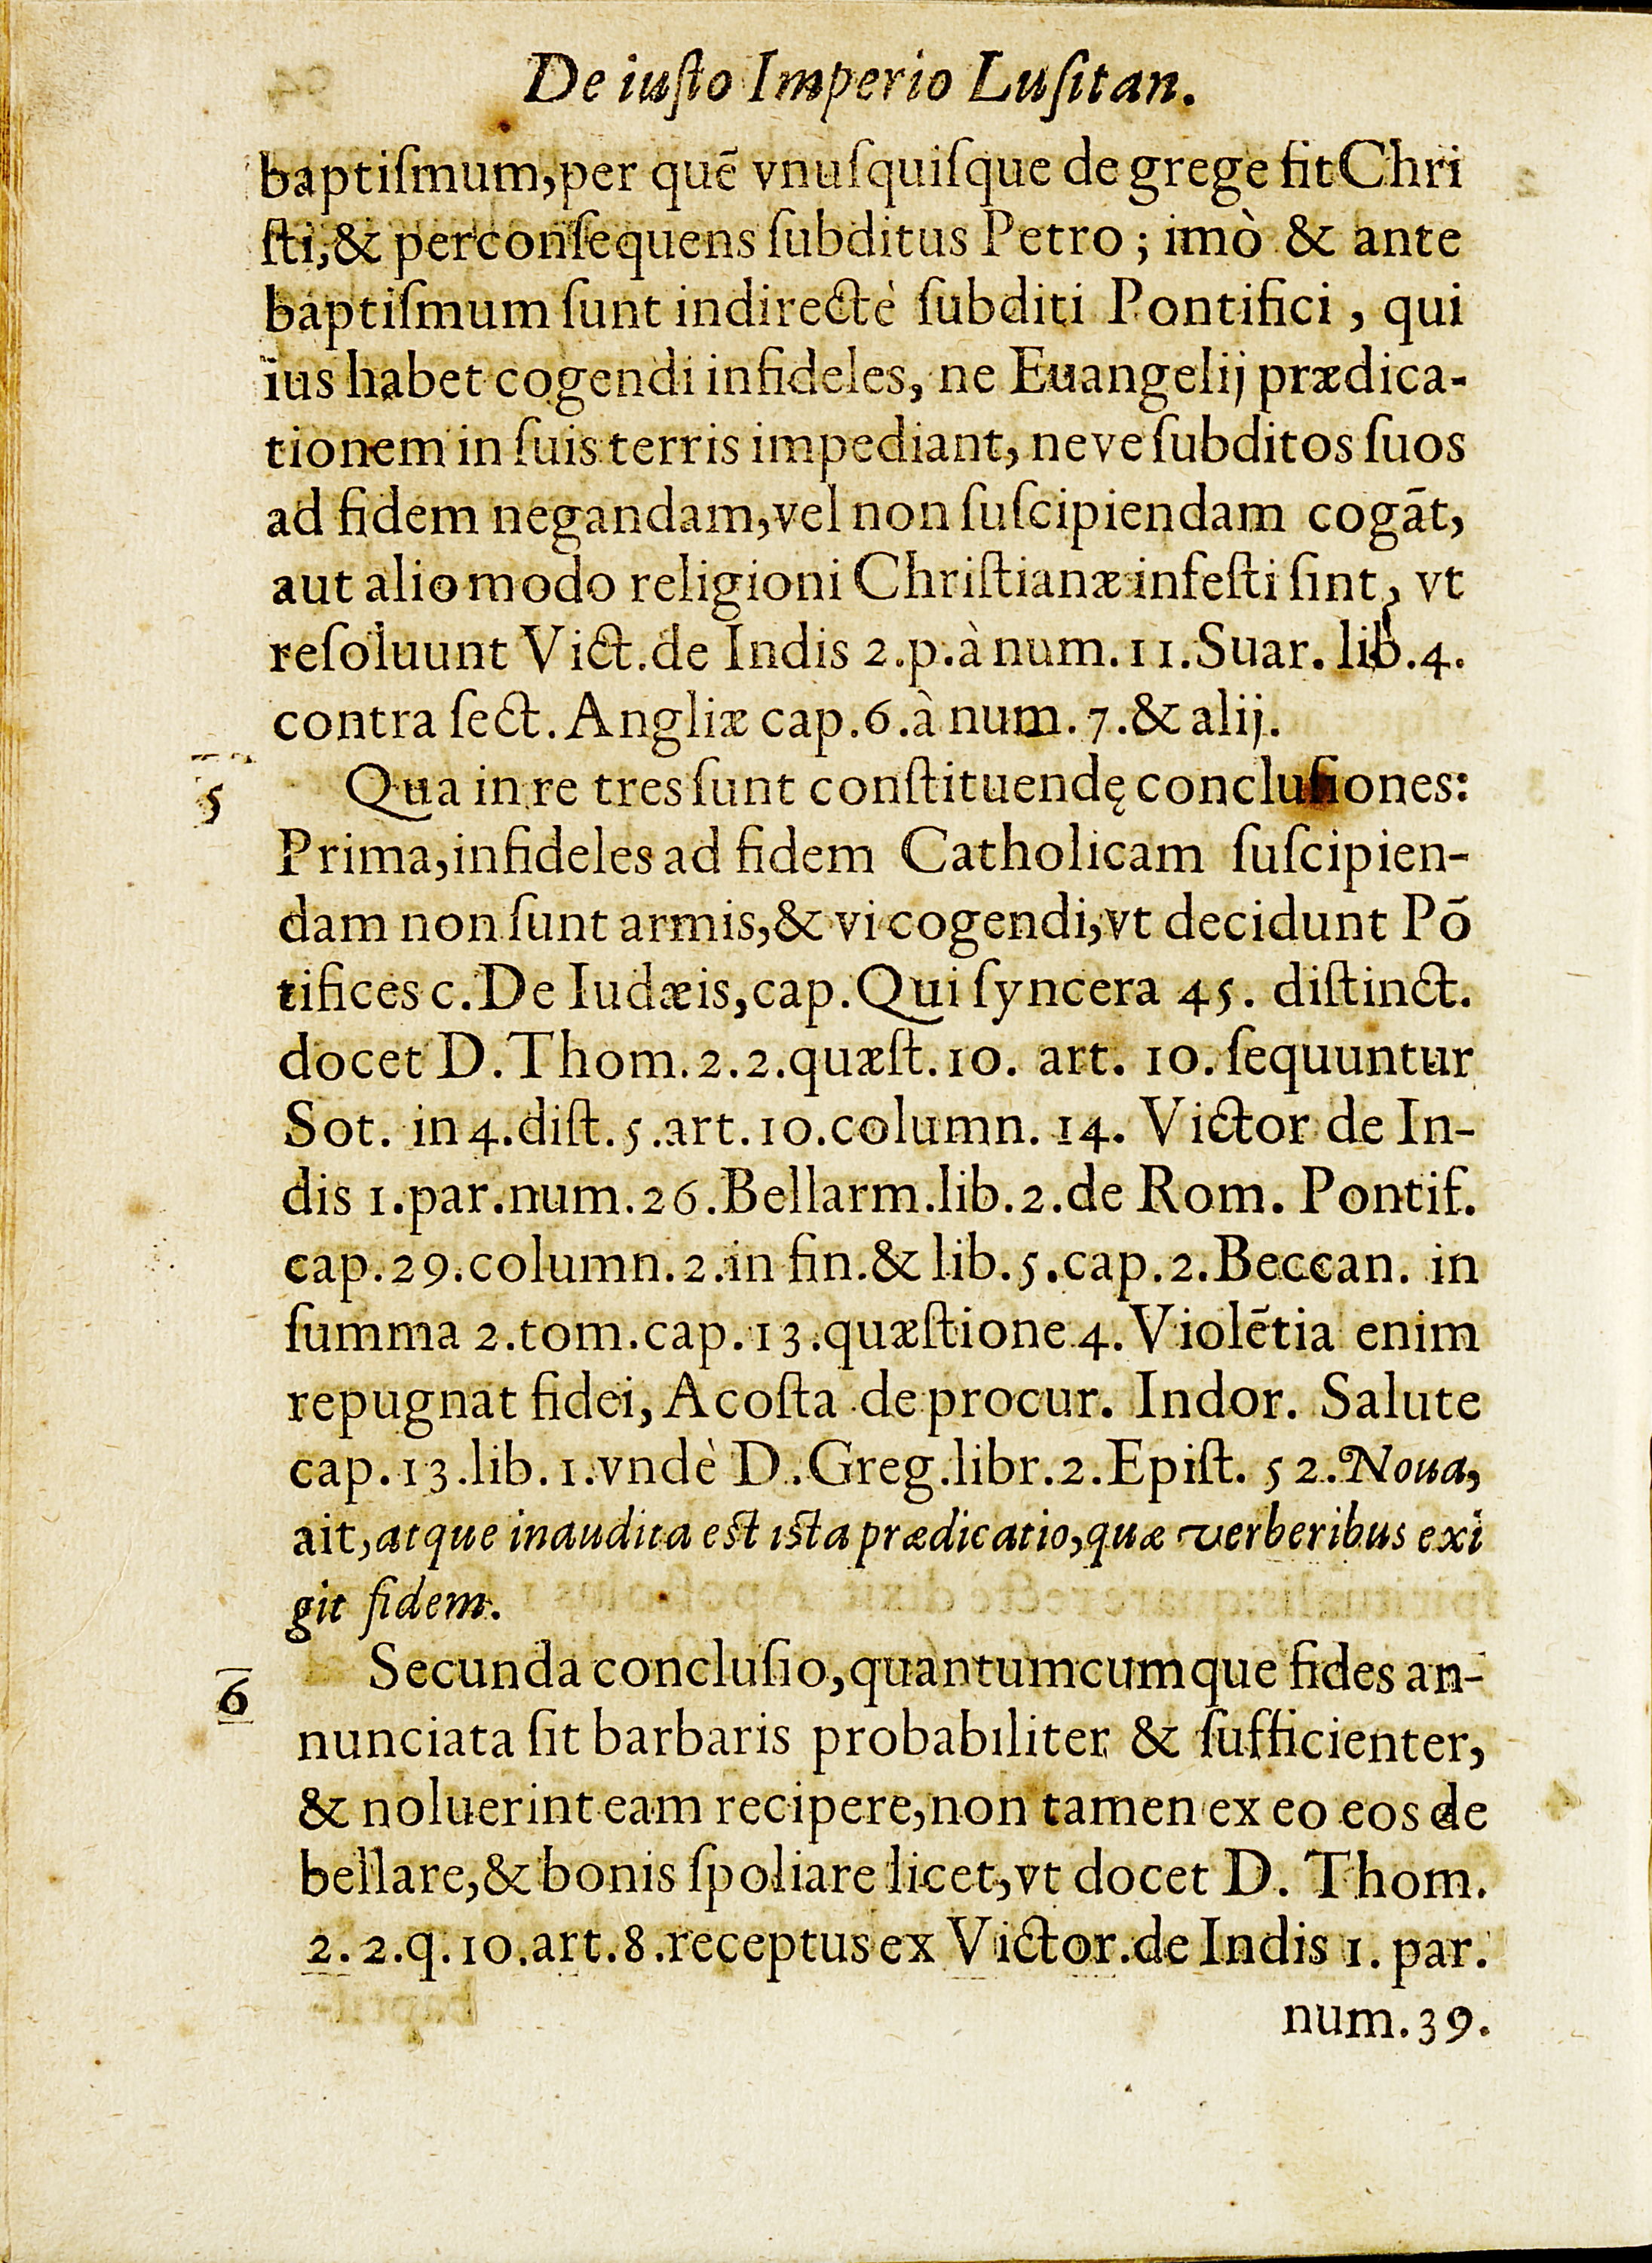 De iuſto Imperio Luſitan.
baptiſmum, per quē vnuſquiſque de grege fit Chri
ſti, & per conſequens ſubditus Petro; imò & ante
baptiſmum ſunt indirectè ſubditi Pontifici, qui
ius habet cogendi infideles, ne Euangelij prædica-
tionem in ſuis terris impediant, neve ſubditos ſuos
ad fidem negandam, vel non ſuſcipiendam cogāt,
aut alio modo religioni Chriſtianæ infeſti ſint, vt
reſoluunt Vict. de Indis 2. p. à num. 11. Suar. lib. 4.
contra ſect. Angliæ cap. 6. à num. 7. & alij.
5 Qua in re tres ſunt conſtituendę concluſiones:
Prima, infideles ad fidem Catholicam ſuſcipien-
dam non ſunt armis, & vi cogendi, vt decidunt Pō
tifices c. De Iudæis, cap. Qui ſyncera 45. diſtinct.
docet D. Thom. 2. 2. quæſt. 10. art. 10. ſequuntur
Sot. in 4. diſt. 5. art. 10. column. 14. Victor de In-
dis 1. par. num. 26. Bellarm. lib. 2. de Rom. Pontif.
cap. 29. column. 2. in fin. & lib. 5. cap. 2. Beccan. in
ſumma 2. tom. cap. 13. quæſtione 4. Violētia enim
repugnat fidei, Acoſta de procur. Indor. Salute
cap. 13. lib. 1. vndè D. Greg. libr. 2. Epiſt. 52. Noua,
ait, atque inaudita eſt iſta prædicatio, quæ verberibus exi
git fidem.
6 Secunda concluſio, quantumcumque fides an-
nunciata ſit barbaris probabiliter & ſufficienter,
& noluerint eam recipere, non tamen ex eo eos de
bellare, & bonis ſpoliare licet, vt docet D. Thom.
2. 2. q. 10. art. 8. receptus ex Victor. de Indis 1. par.
num. 39.